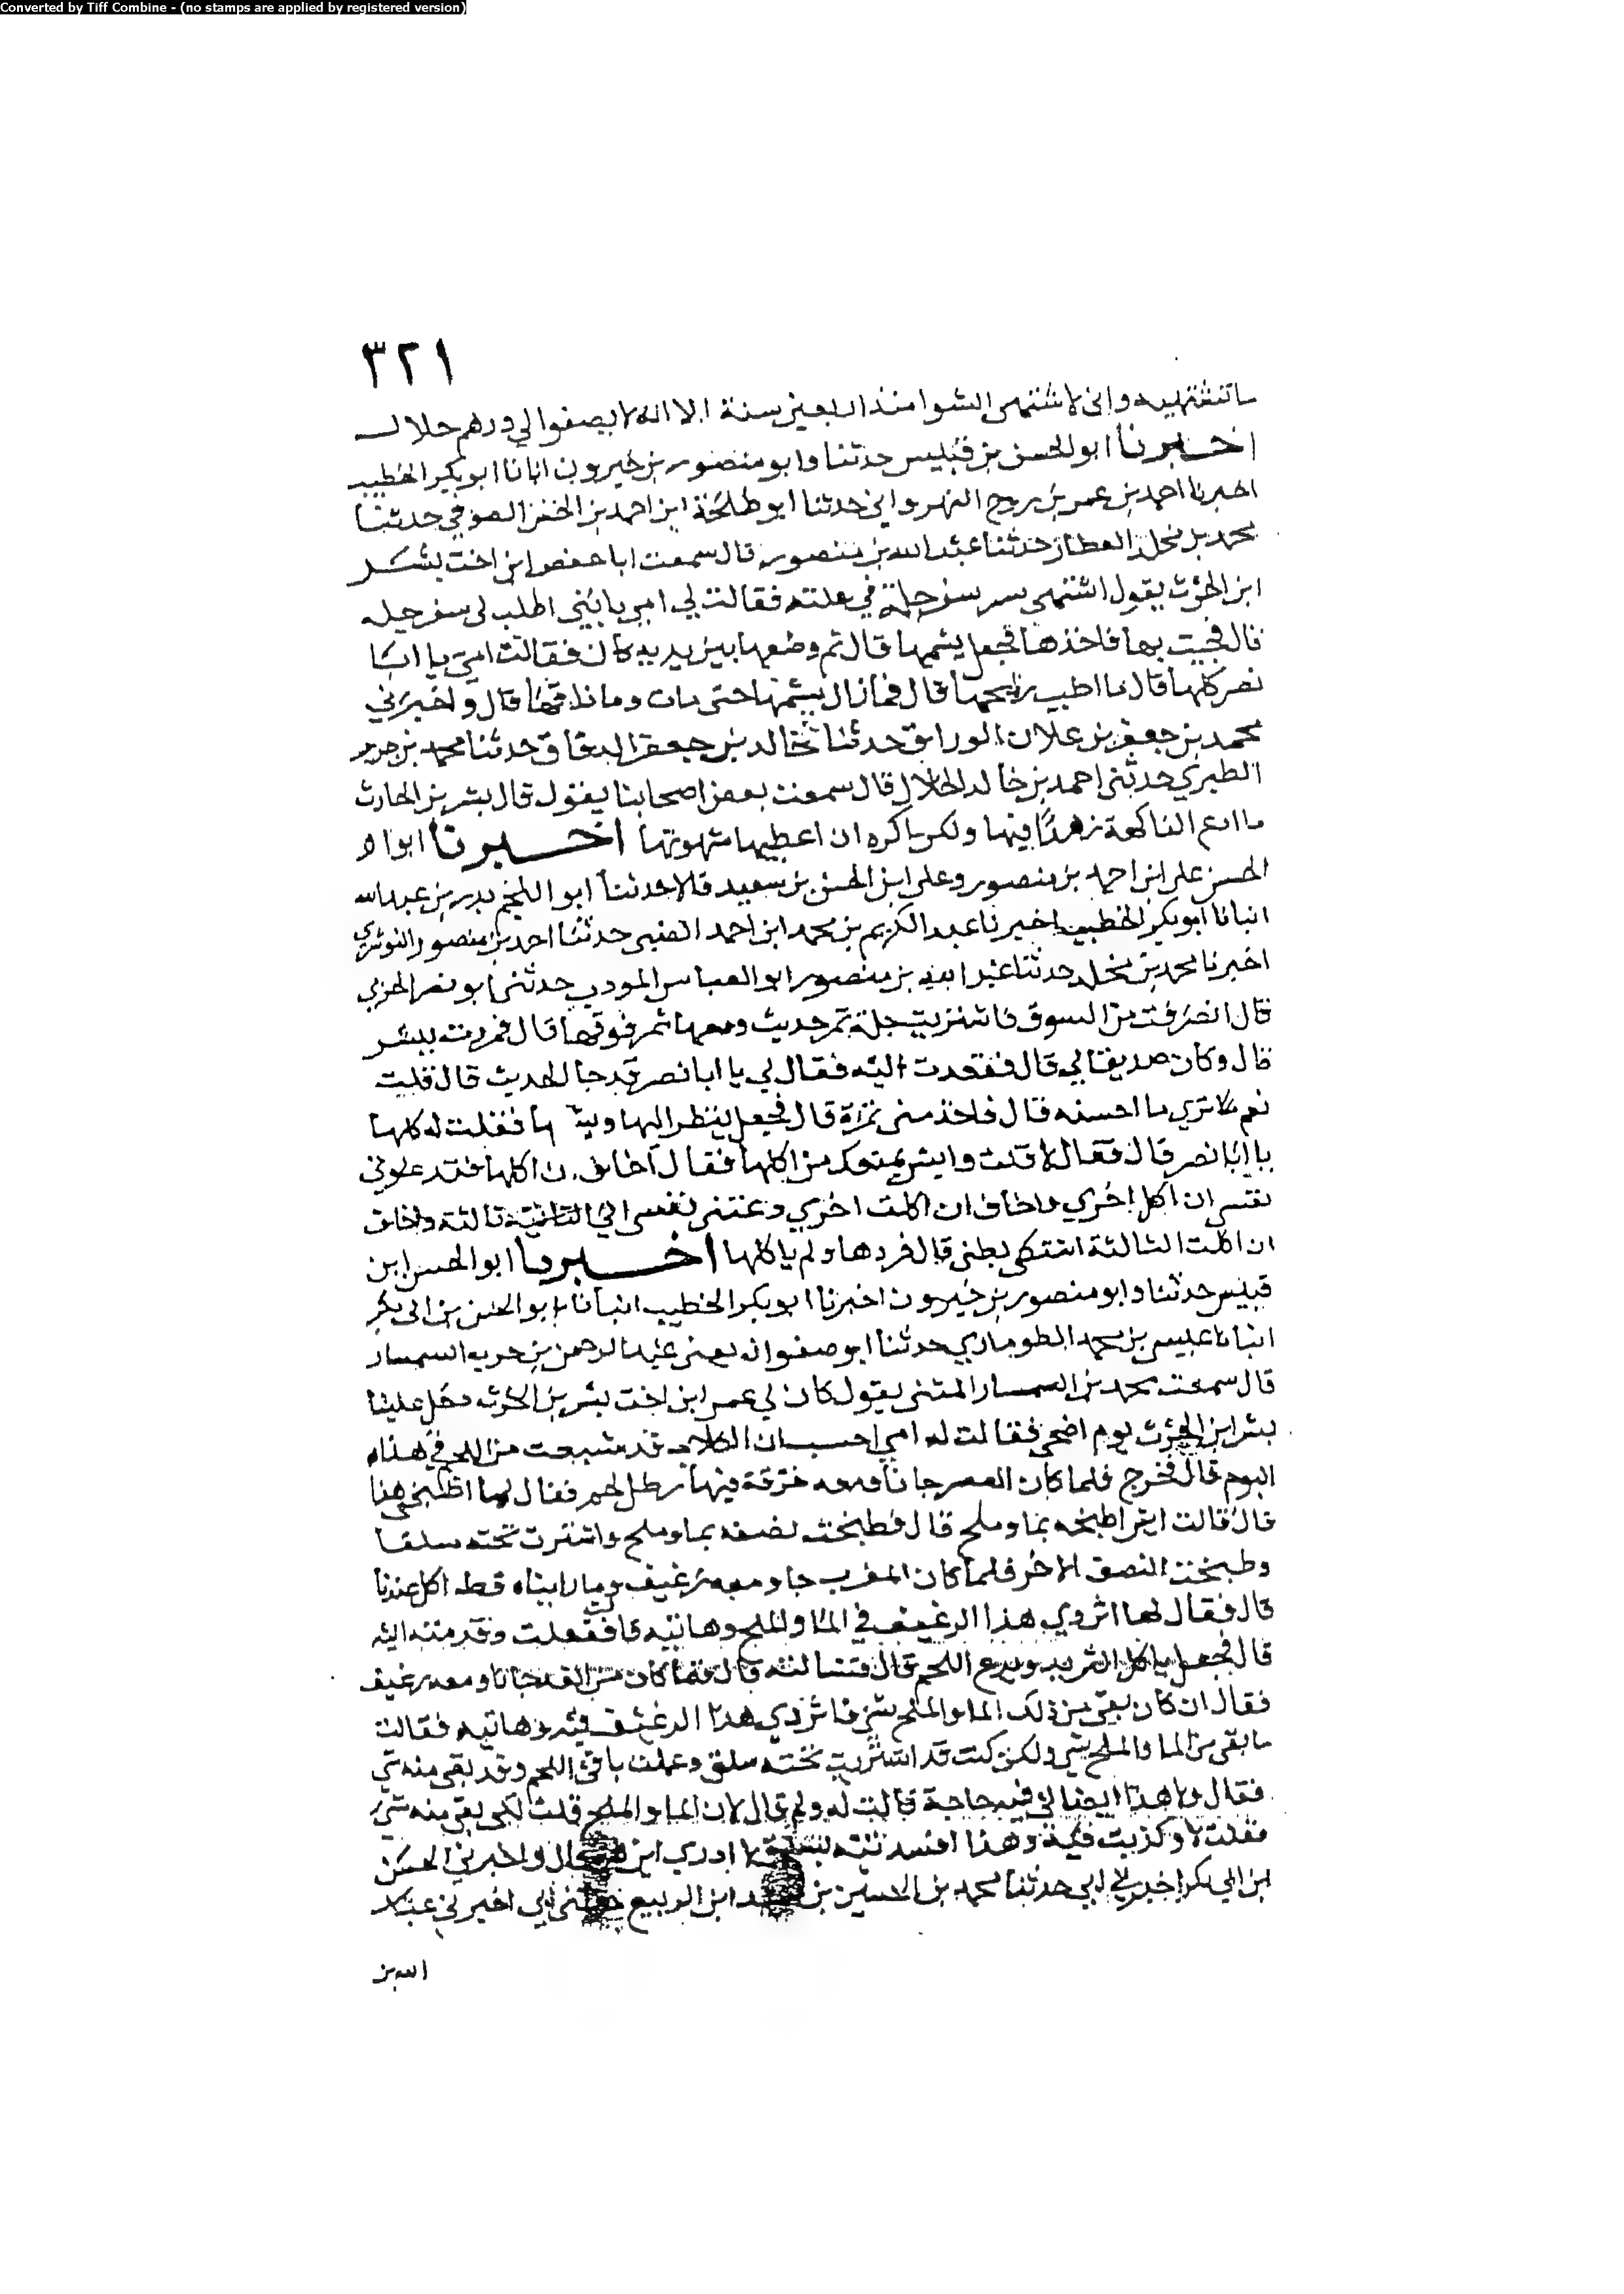 Converted by Tiff Combine - (no stamps are applied by registered version)
٣٢١
ما تشتهيه واني لاشتهي الشوا منذ اربعين سنة الا انه لا يصفوا لي درهم حلال
اخبرنا ابو الحسن بن قبليس حدثنا وابو منصور بن خيرون انبانا ابو بكر الخطيب
اخبرنا احمد بن عمر بن روح النهرواني حدثنا ابو طلحة ابن احمد بن الحسن الصوفي حدثنا
محمد بن مخلد العطار حدثنا عبد الله بن منصور قال سمعت ابا حفص ابن اخت بشر
ابن الحرث يقول اشتهى بشر سفرجلة في علته فقالت لي امي يا بني اطلب لى سفرجله
قال فجيت بها فاخذها فجعل يشمها قال ثم وضعها بين يديه كان فقالت امي يا ابا
نصر كلها قال ما اطيب ريحها قال فما زال يشمها حتى مات وما ذاقها قال واخبرني
محمد بن جعفر بن علان الوراق حدثنا مخالد بن جعفر الدقاق حدثنا محمد بن جرير
الطبري حدثني احمد بن خالد الخلال قال سمعت بعض اصحابنا يقول قال بشر بن الحارث
ما ادع الفاكهة زهدا فيها ولكن اكره ان اعطيها شهوتها اخبرنا ابوا
الحسن على ابن احمد بن منصور وعلى ابن الحسن بن سعيد قالا حدثنا ابو النجم بدر بن عبد الله
انبانا ابو بكر الخطيب اخبرنا عبد الكريم بن محمد ابن احمد الضبى حدثنا احمد بن منصور النوشري
اخبرنا محمد بن مخلد حدثنا عبد الله بن منصور ابو العباس المودب حدثني ابو نصر الحربي
قال انصرفت من السوق فاشتريت جلة تمر حديث ومعها تمر فوقها قال فمررت ببشر
قال وكان صديقا لي قال فقعدت اليه فقال لي يا ابا نصر قد جا الحديث قال قلت
نعم الا تري ما احسنه قال فاخذ منى تمرة قال فجعل ينظر اليها فقلت له كلها
يا ابا نصر قال فقال لا قلت وايش يمنعك من اكلها فقال اخاف ان اكلها فتدعوني
نفسي ان اكل اخري واخاف ان اكلت اخري دعتني نفسي الى الثانية ثالثة واخاف
ان اكلت الثالثة اشتكى بطنى قال فردها ولم ياكلها اخبرنا ابو الحسن ابن
قبيس حدثنا وابو منصور بن خيرون اخبرنا ابو بكر الخطيب انبانا ابو الحسن بن ابى بكر
انبانا عيسى بن محمد الطوماري حدثنا ابو صفوان يعنى عبد الرحمن بن حرب السمسار
قال سمعت محمد بن السمسار المثنى يقول كان لي عمر ابن اخت بشر بن الحرث دخل علينا
بشر ابن الحرث يوم اضحى فقالت له امي احسب ان الكلاب قد شبعت من اللحم في هذا
اليوم قال فخرج فلما كان العصر جانا ومعه خرقة فيها رطل لحم فقال لها اطبخى هذا
قال قالت ايش اطبخه بما وملح قال فطبخت نصفه بما وملح واشترت تحته سلقا
وطبخت النصف الاخر فلما كان المغرب جا ومعه رغيف وما رايناه قط اكل عندنا
قال فقال لها اثردي هذا الرغيف في الما والملح وهاتيه قا ففعلت وقدمته اليه
قال فجعل ياكل الثريد ويدع اللحم قال فشالته قال فلما كان من الغد جانا ومعه رغيف
فقال ان كان بقى من ذلك الما والملح شي فاثردي هذا الرغيف فيه وهاتيه فقالت
ما بقى من الما والملح شي ولكن كنت قد اشتريت تحته سلق وعملت باقى اللحم وقد بقى منه شي
فقال ولا هذا ايضا لي فيه حاجة قالت له ولم قال لان الما والملح قلت لكى بقى منه شي
فقلت لا وكذبت فيه وهذا افسدتيه بسلق لا ادري اين قال واخبرني الحسن
ابن ابي بكر اخبرني ابي حدثنا محمد بن الحسين بن ابن الربيع حدثني ابي اخبرني عبد
الله بن